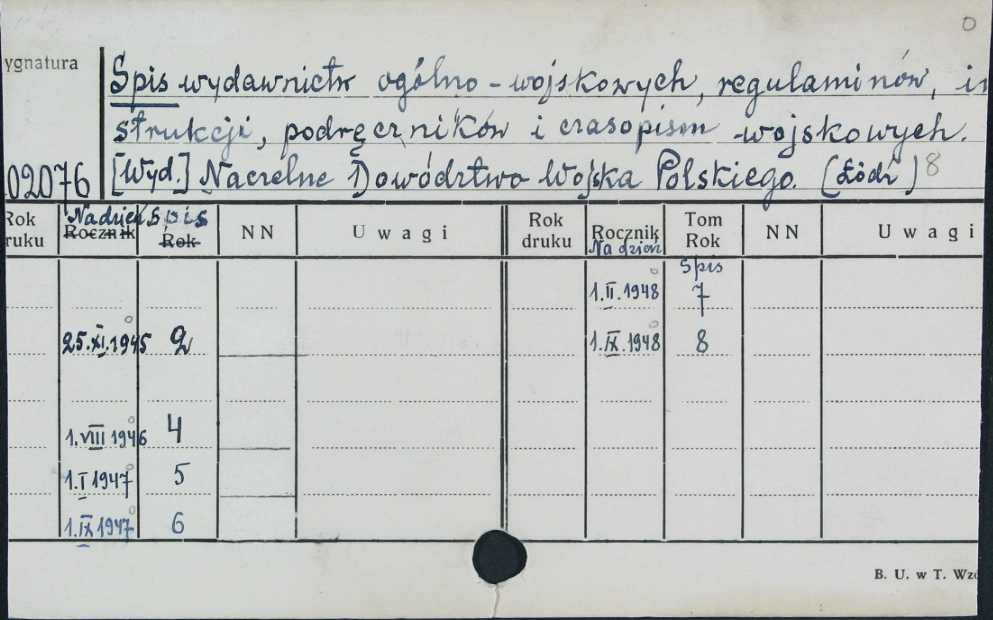 0
ygnatura
Spis wydawnictw ogólno-wojskowych, regulaminów, in
strukcji, podręczników i czasopism wojskowych.
02076 [Wyd.] Naczelne Dowództwo Wojska Polskiego. (Łódź) 8
Rok ruku Nadzień Rocznik Spis Rok NN Uwagi Rok druku Rocznik Na dzień Tom Rok NN Uwagi
Spis
1.II.1948 7
25.XI.1945 2 1.IX.1948 8
1.VIII 1946 4
1.I 1947 5
1.IX 1947 6
B. U. w T. Wzó